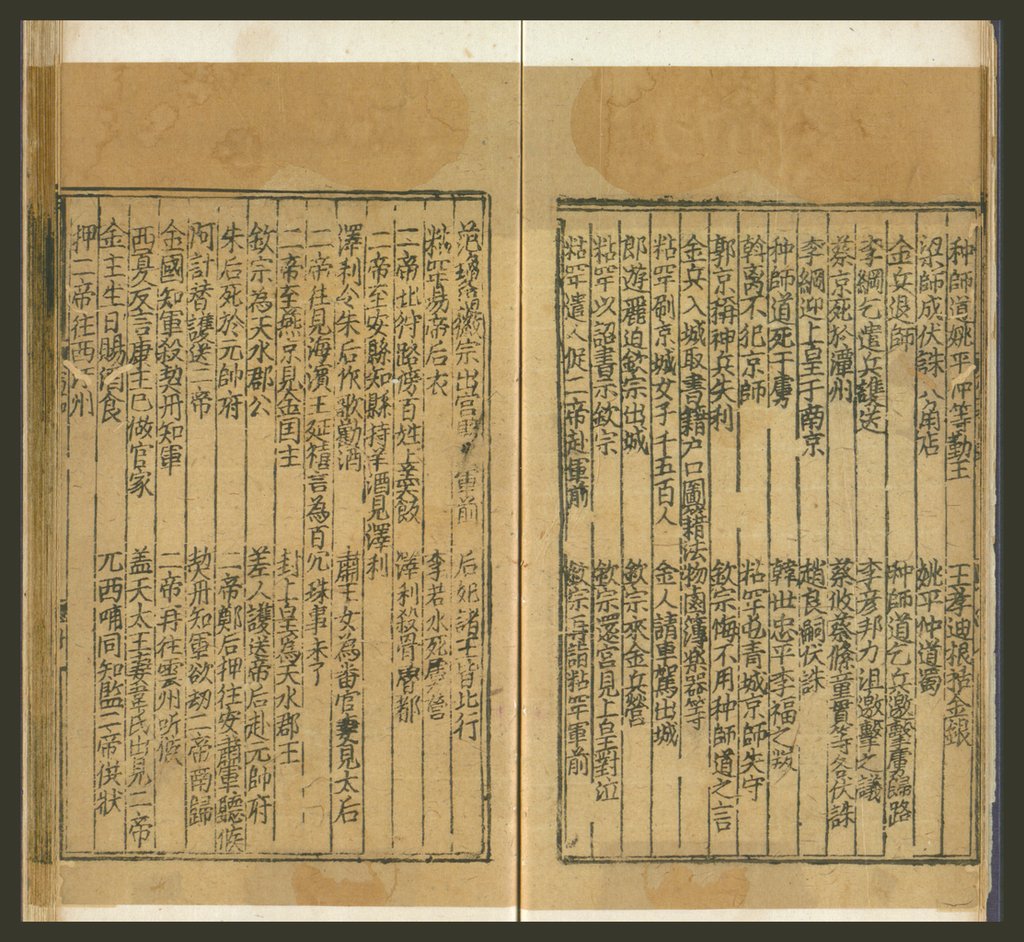 种師道姚平仲等勤王　王孝迪根括金銀
梁師成伏誅　八角店　姚平仲道蜀
金兵退師　种師道乞兵邀擊虜歸路
李綱乞遣兵護送　李彦邦力沮邀擊之議
蔡京死於潭州　蔡攸蔡絛童貫等各伏誅
李綱迎上皇于南京　趙良嗣伏誅
种師道死于虜　韓世忠平李福之叛
斡离不犯京師　粘罕屯青城京師失守
郭京神兵失利　欽宗悔不用种師道之言
金兵入城取書籍户口圖籍法物鹵簿樂器等
粘罕刷京城女子千五百人　金人請車駕出城
郎遊麗迫欽宗出城　欽宗來金兵營
粘罕以詔書示欽宗　欽宗還宮見上皇對泣
粘罕遣人促二帝赴軍前　欽宗再詣粘罕軍前
范瓊徽宗出宮軍前　后妃諸王皆北行
粘罕易帝后衣　李若水死虜營
二帝北狩路傍百姓上羹飯　澤利殺骨都
二帝至安縣知縣持羊酒見澤利
澤利令朱后作歌勸酒　肅王女為番官妻見太后
二帝往見海濵王延禧言為百冗珠事未了
二帝至燕京見金国主　封上皇為天水郡王
欽宗為天水郡公　差人護送帝后赴元帥府
朱后死於元帥府　二帝鄭后押往安肅軍聽候
阿計替護送二帝　契丹知軍欲劫二帝南歸
金國知軍殺契丹知軍　二帝再往雲州听候
西夏反言康王已做官家　盖天大王妻韋氏出見二帝
金主生日賜酒食　兀西哺同知監二帝供狀
押二帝往西州